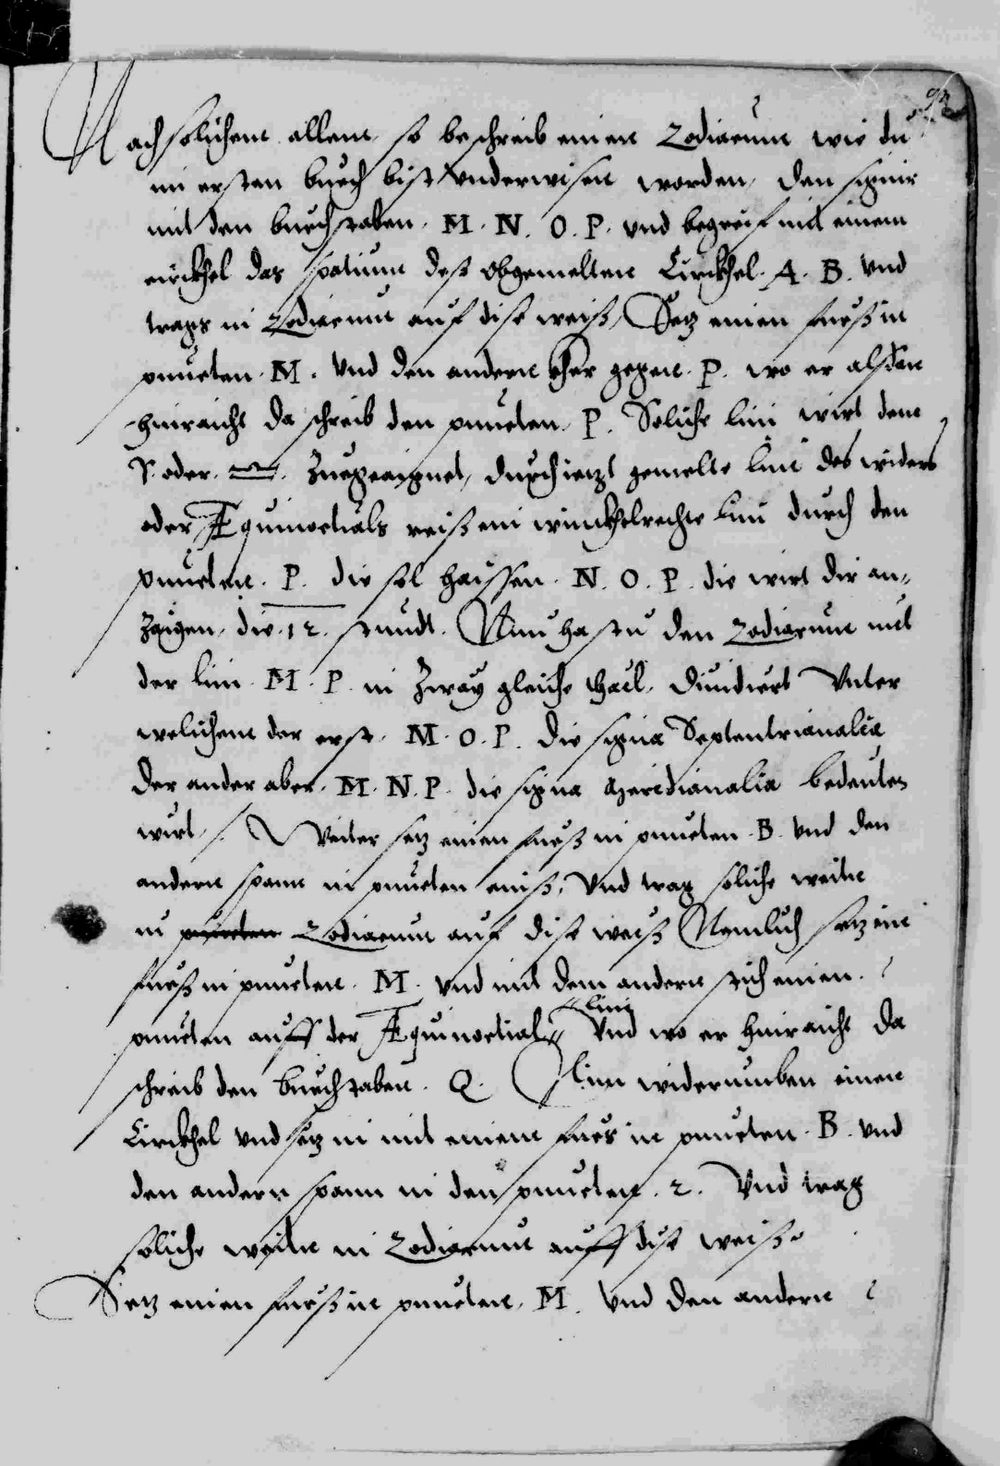 Nach solichem allem, so beschreib einen Zodiacum wie du
im ersten buech bist underwisen worden, den signir
mit den buechstaben. M. N. O. P. und begreif mit einem
cirkhel das spatium deß obgemelten Circkhel. A. B. und
trags in Zodiacum auf dise weiß, Setz einen fueß in
puncten. M. und den andern yber gegen. P. wo er alßdan
hinraicht da schreib den puncten. P. Soliche lini wirt dem
♈ oder ♎. Zuegeaignet, durch ietzt gemelte lini des widers
oder Æquinoctials reiß ein winckhelrechte lini durch den
puncten. P. die sol haissen. N. O. P. die wirt dir an-
zaigen, die. 12. stundt. Nun hastu den Zodiacum mit
der lini. M. P. in zway gleiche thail, dividiert unter
welichem der erst. M. O. P. die signa Septentrionalia
der ander aber. M. N. P. die signa Meridianalia bedeuten
wirt. Weiter setz einen fueß in puncten. B. und den
andern spann in puncten ainß, und trag soliche weite
in puncten Zodiacum auf dise weiß Nemlich setz ein
fueß in puncten. M. und mit dem andern stich einen.
puncten auff der Æquinoctial lini und wo er hinraicht da
schreib den buechstaben. Q. Nim widerumben einen
Circkhel und setz in mit einem fues in puncten. B. und
den andern spann in den puncten. 2. Und trag
soliche weite in Zodiacum auff dise weiße
Setz einen fueß in puncten, M. und den andern